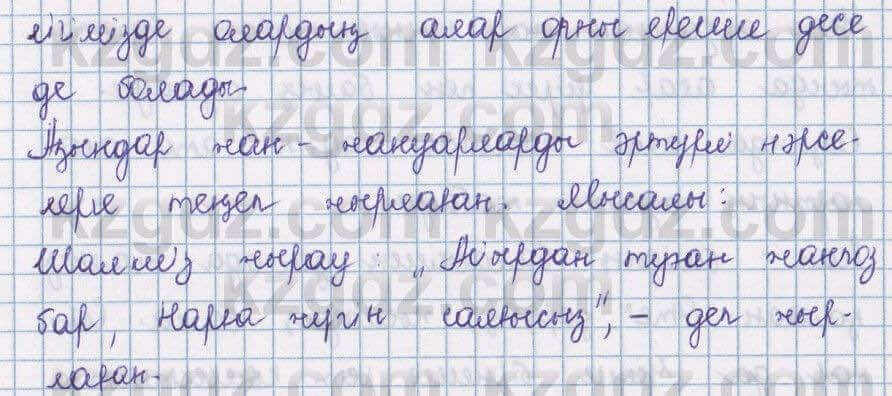 мізде олардың алар орны ерекше десе
де болады.
Ақындар жан - жануарларды әртүрлі нәрсе-
лерге теңеп жырлаған. Мысалы:
Шалкиіз жырау: „Айырдан туған жампоз
бар, Нарға жүгін салғысыз", - деп жыр-
лаған.